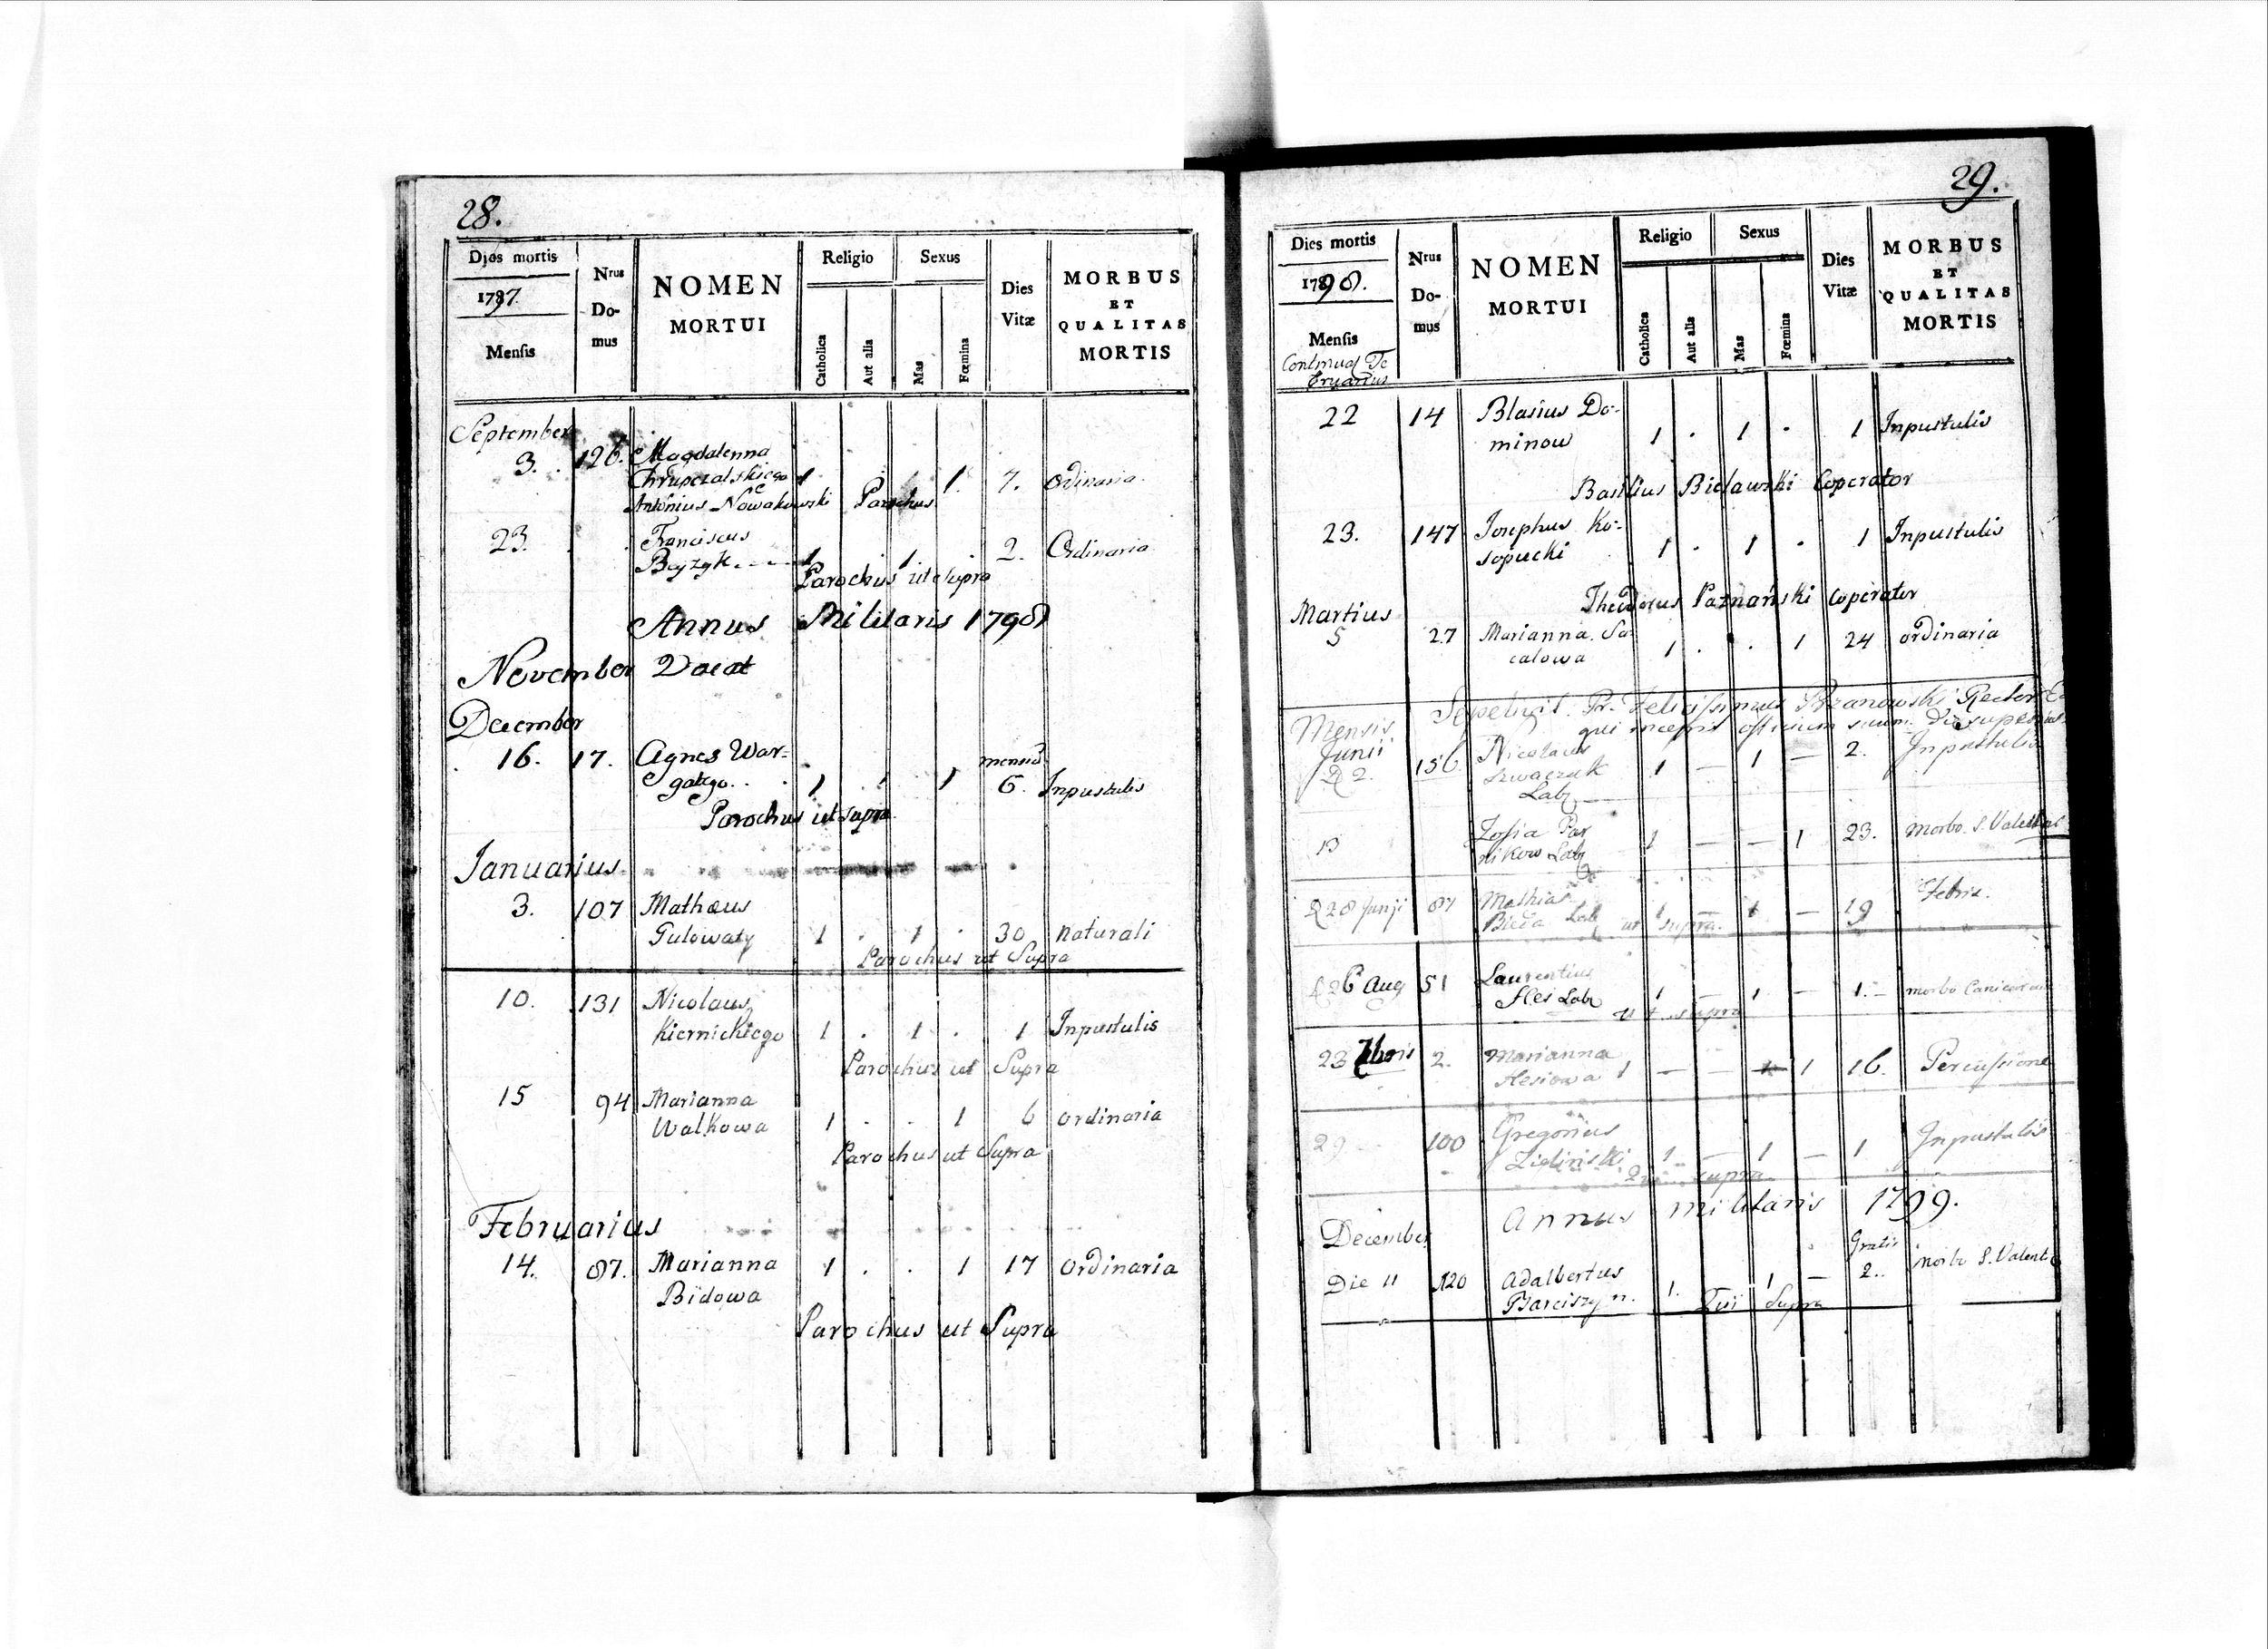 28.
Dies mortis
1797.
Mensis
Nrus
Do-
mus
NOMEN
MORTUI
Religio
Catholica
Aut alia
Sexus
Mas
Fœmina
Dies
Vitæ
MORBUS
ET
QUALITAS
MORTIS
September
3. 126. Magdalenna
Chrupczalskiego 1 . . 1. 7. Ordinaria.
Antonius Nowakowski Parochus
23. Franciscus
Bayzyk 1 . 1 . 2. Ordinaria
Parochus ut Supra
Annus Militaris 1798
November Vacat
December
16. 17. Agnes War-
galego 1 1 mensis 6. Inpustulis
Parochus ut supra
Januarius
3. 107 Mathæus
Gulowaty 1 . 1 . 30 naturali
Parochus ut Supra
10. 131 Nicolaus
Kiernickiego 1 . 1 . 1 Inpustulis
Parochus ut Supra
15 94 Marianna
Walkowa 1 . . 1 6 ordinaria
Parochus ut Supra
Februarius
14. 87. Marianna 1 . . 1 17 ordinaria
Bidowa
Parochus ut Supra
29.
Dies mortis
1798.
Mensis
Nrus
Do-
mus
NOMEN
MORTUI
Religio
Catholica
Aut alia
Sexus
Mas
Fœmina
Dies
Vitæ
MORBUS
ET
QUALITAS
MORTIS
22 14 Blasius Do-
minow 1 . 1 . 1 Inpustulis
Basilius Bielawski Coperator
23. 147 Josephus Ko-
sopucki 1 . 1 . 1 Inpustulis
Theodorus Paznański Coperator
Martius
5 27 Marianna Sa-
calowa 1 . . 1 24 ordinaria
Sepelivit Pr. Felicissimus Brzanowski Rector
qui incepit officium suum
Mensis
Junii
22. 156 Nicolaus
Szwaczuk 1 — 1 — 2. Inpustulis
Lab
13 Zofia Par
nikow Lab 1 — — 1 23. Morbo S. Valent
28 Junji 87 Mathias
Bieda Lab 1 — 1 — 19 Febris.
ut supra.
26 Aug 51 Laurentius
Lab 1 — 1 — 1. — morbo
ut supra
23 7bris 2. Marianna
1 — — 1 16. Percussione
29 100 Gregorius
Zieliński 1 — 1 — 1 Inpustulis
supra
Annus militaris 1799.
December
Die 11 120 Adalbertus 1. 1 — Gratis 2. Morbo S. Valent
Barciszyn.
Qui Supra